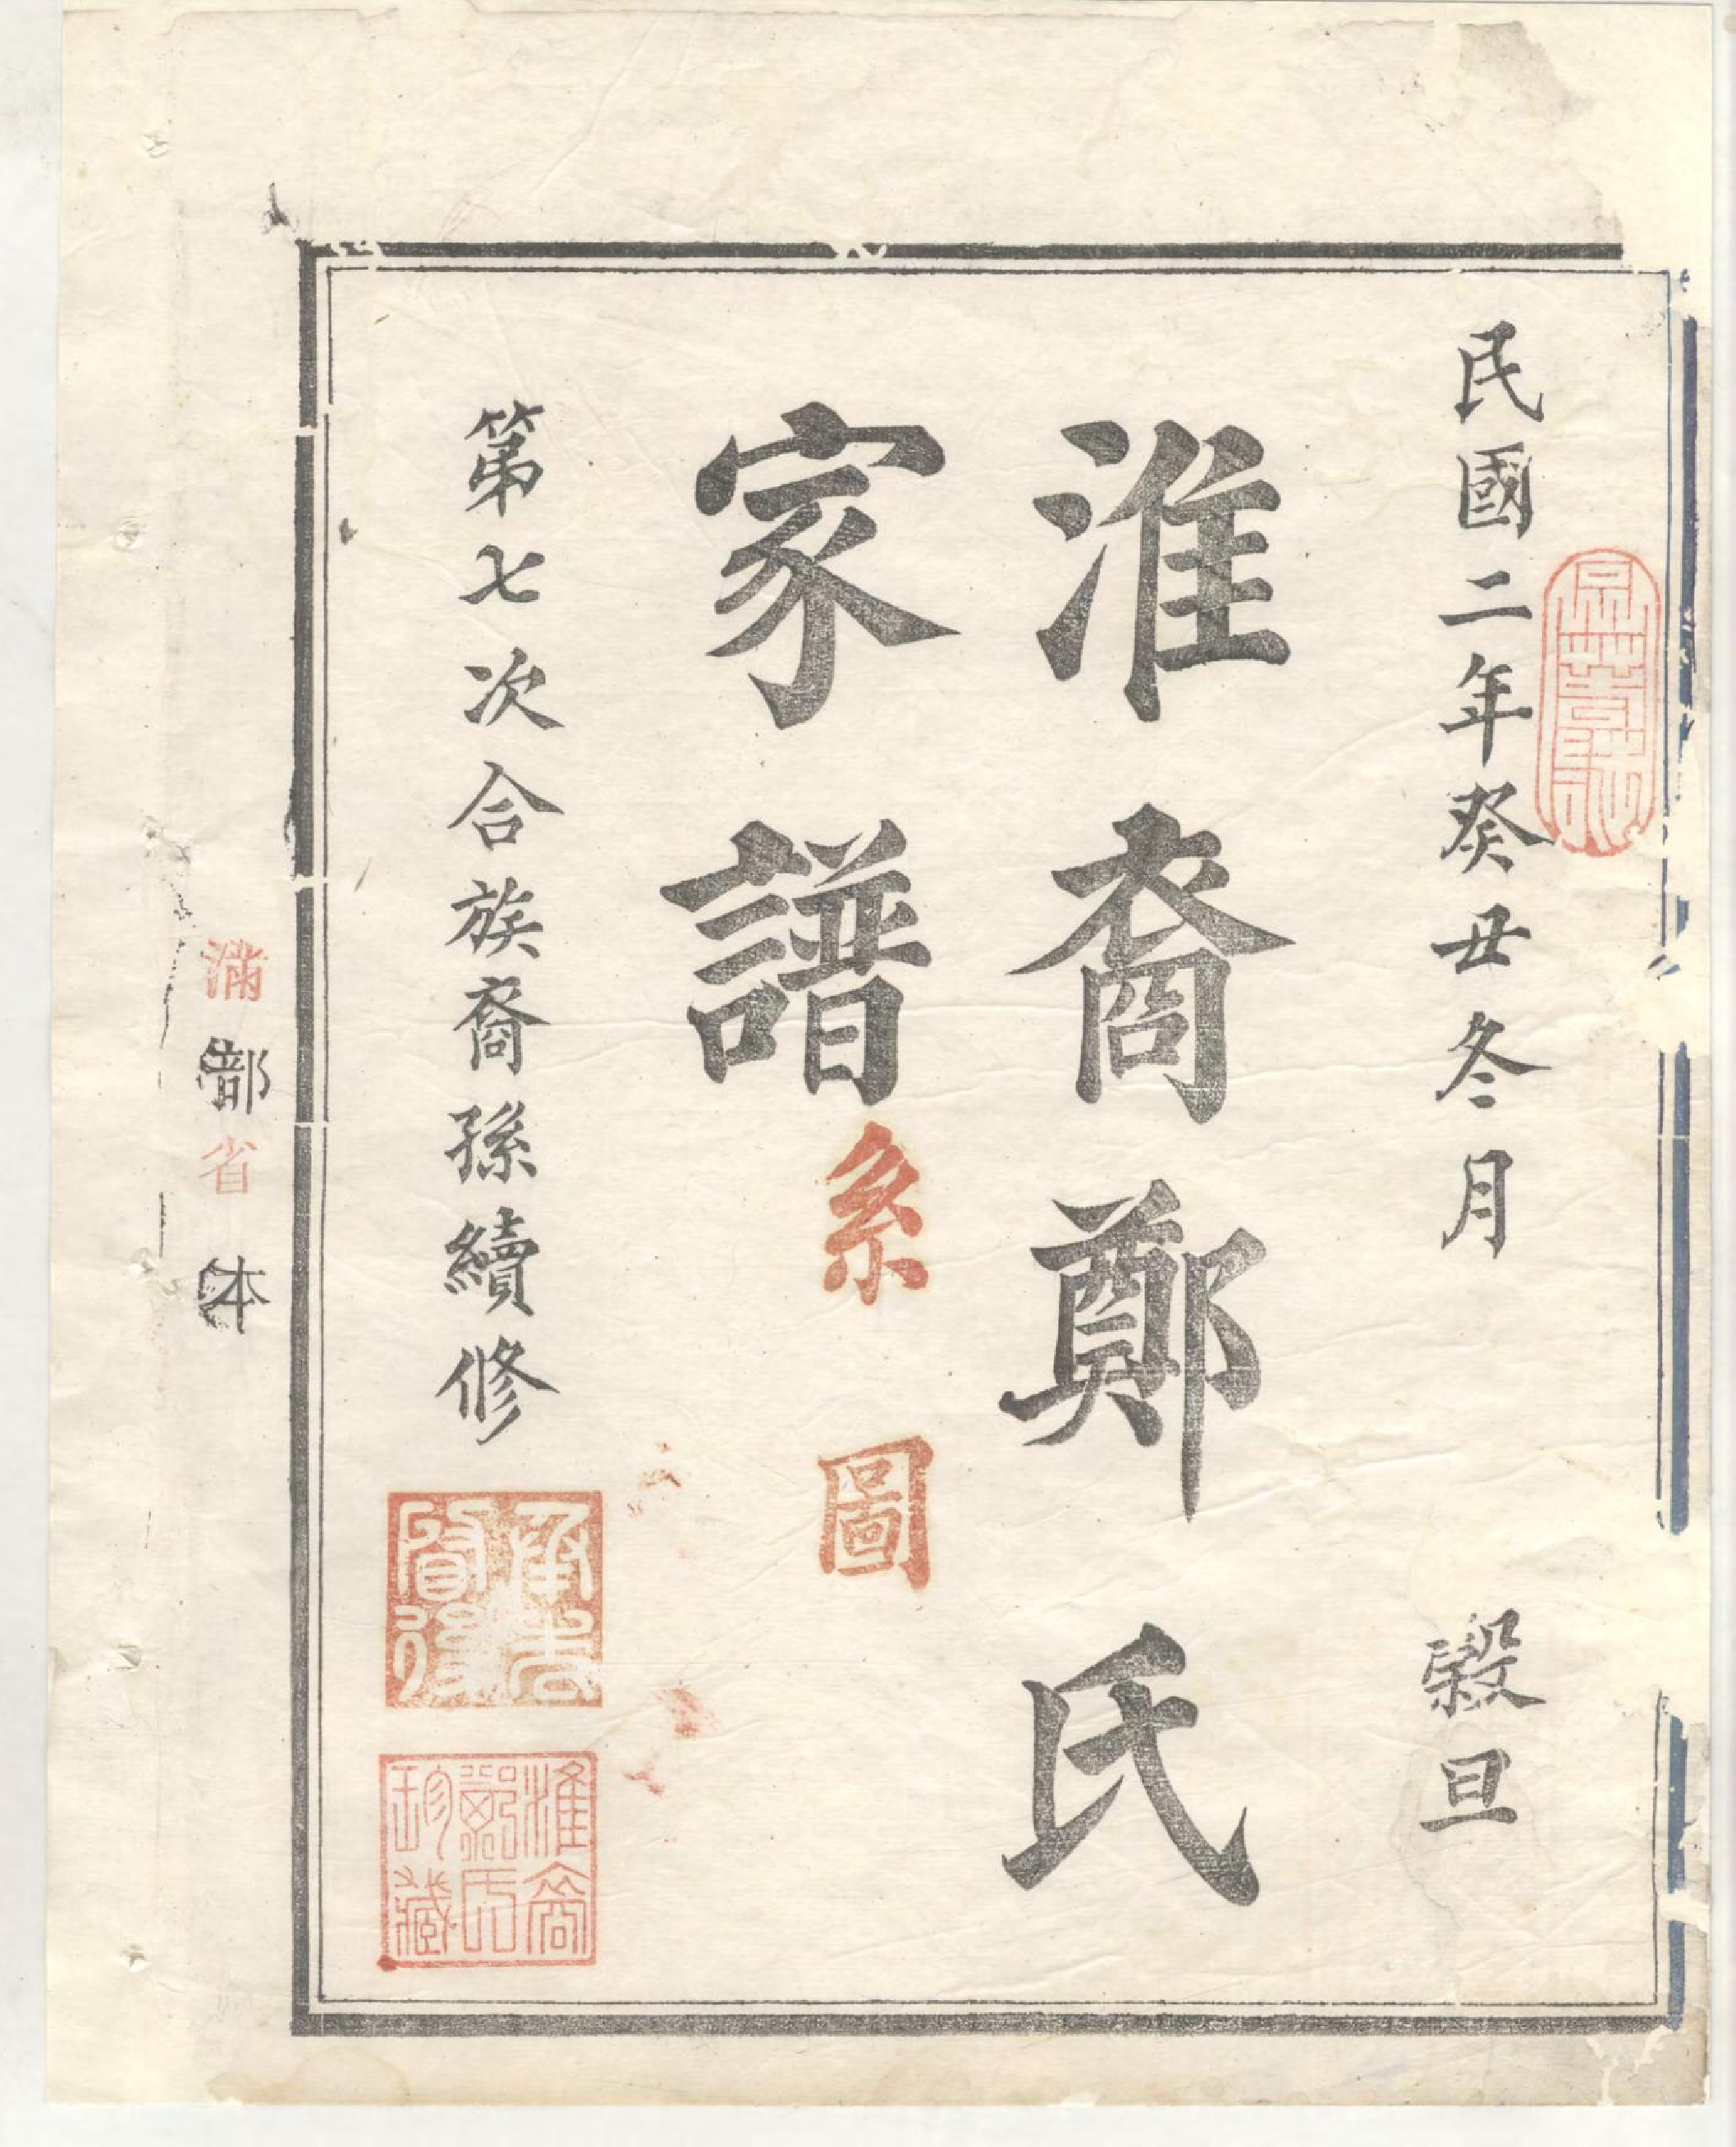 民國二年癸丑冬月 穀旦
淮裔鄭氏
家譜系圖
第七次合族裔孫續修
淮裔鄭氏珍藏
滿部省本